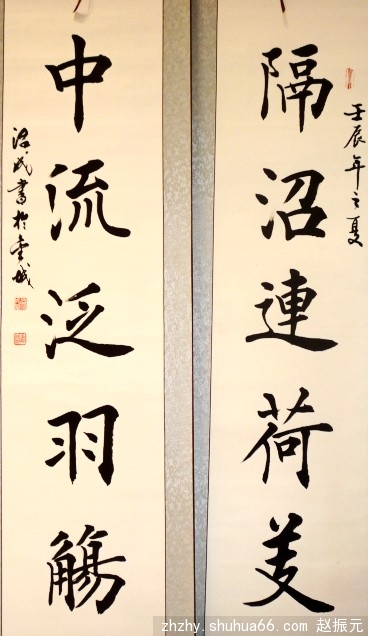 壬辰年之夏
隔沼連荷芰
中流泛羽觴
民書於城
zhzhy.shuhua66.com 赵振元